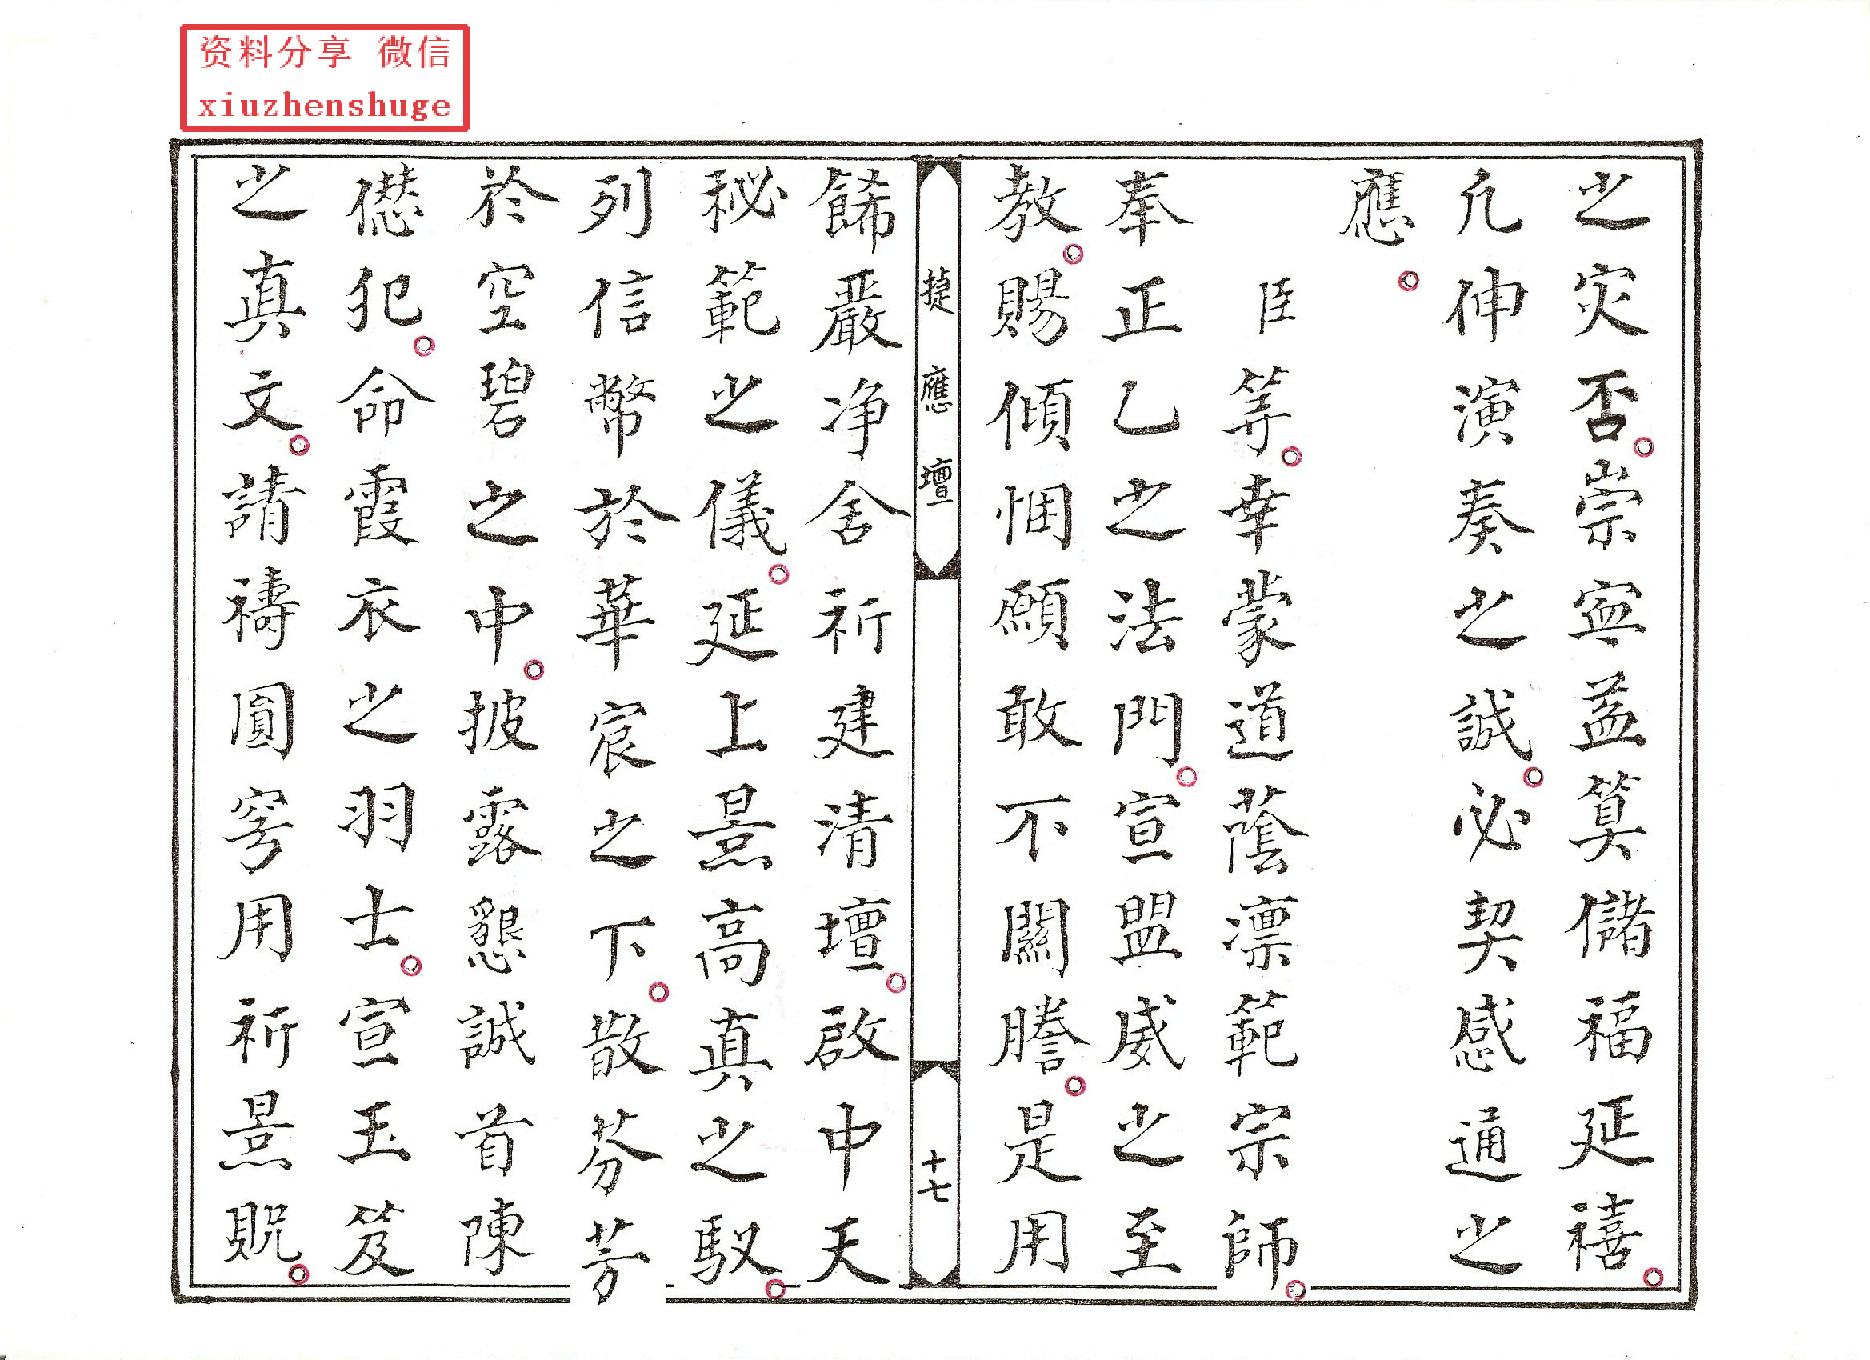 资料分享 微信
xiuzhenshuge
之灾否。崇寧益算儲福延禧。
凡伸演奏之誠。必契感通之
應。
臣等。幸蒙道蔭凛範宗師。
奉正乙之法門。宣盟威之至
教。賜傾悃願敢不關謄。是用
餙嚴净舍祈建清壇。啟中天
秘範之儀。延上景高真之馭。
列信幣於華宸之下。散芬芳
於空碧之中。披露懇誠首陳
僁犯。命霞衣之羽士。宣玉笈
之真文。請禱圓穹用祈景貺。
捷應壇
十七